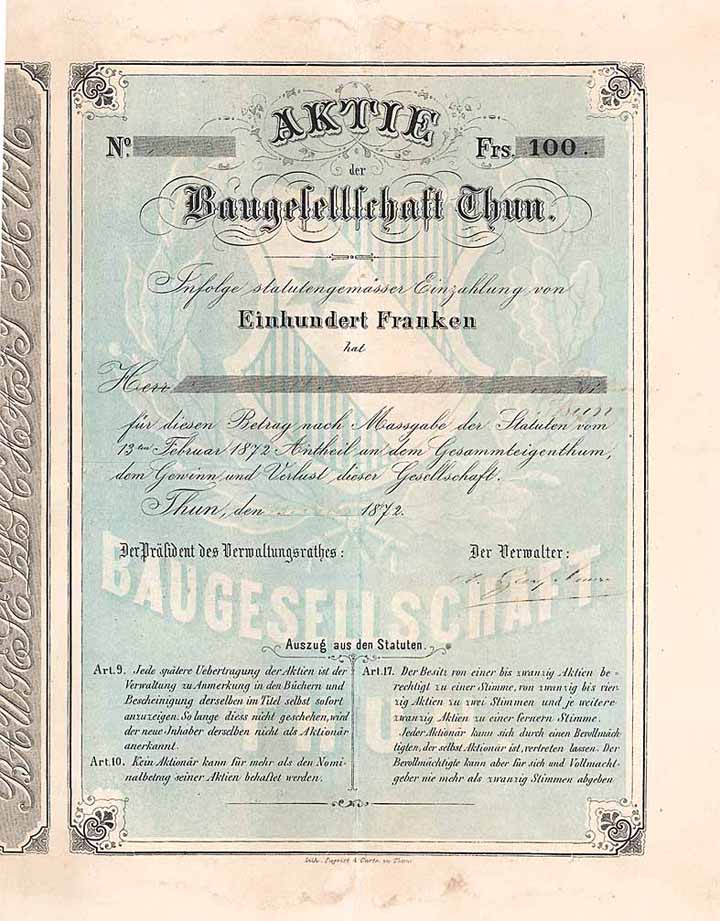 AKTIE
No. Frs. 100.
der
Baugesellschaft Thun.
Infolge statutengemässer Einzahlung von
Einhundert Franken
hat
Herr
für diesen Betrag nach Massgabe der Statuten vom
13ten Februar 1872 Antheil an dem Gesammteigenthum,
dem Gewinn und Verlust dieser Gesellschaft.
Thun, den 1872.
Der Präsident des Verwaltungsrathes: Der Verwalter:
BAUGESELLSCHAFT
THUN
Auszug aus den Statuten.
Art. 9. Jede spätere Uebertragung der Aktien ist der
Verwaltung zu Anmerkung in den Büchern und
Bescheinigung derselben im Titel selbst sofort
anzuzeigen. So lange diess nicht geschehen, wird
der neue Inhaber derselben nicht als Aktionär
anerkannt.
Art. 10. Kein Aktionär kann für mehr als den Nomi-
nalbetrag seiner Aktien behaftet werden.
Art. 17. Der Besitz von einer bis zwanzig Aktien be-
rechtigt zu einer Stimme, von zwanzig bis vier
zig Aktien zu zwei Stimmen und je weitere
zwanzig Aktien zu einer fernern Stimme.
Jeder Aktionär kann sich durch einen Bevollmäch
tigten, der selbst Aktionär ist, vertreten lassen. Der
Bevollmächtigte kann aber für sich und Vollmacht-
geber nie mehr als zwanzig Stimmen abgeben
BAUGESELLSCHAFT THUN.